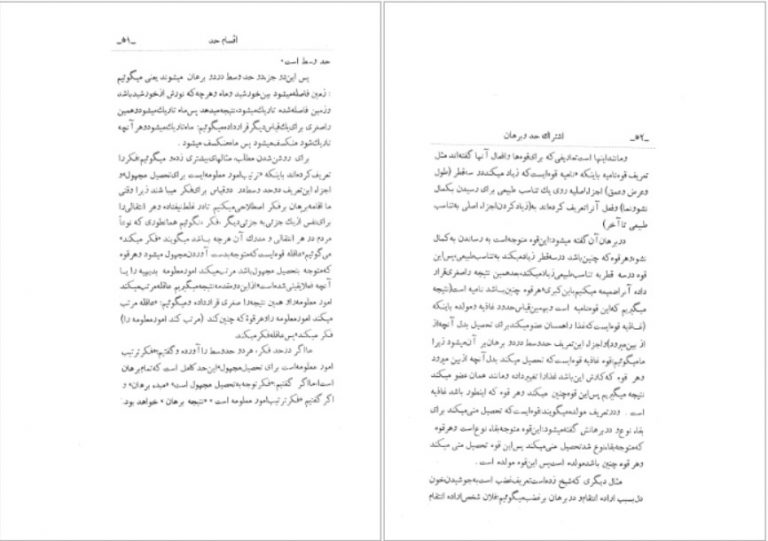 اقسام حد -۵۱-
حد وسط است.
پس این دو جزء دو حد وسط در دو برهان میشوند یعنی میگوئیم
: زمین فاصله میشود بین خورشید و ماه و هر چه که نورش از خورشید باشد
و زمین فاصله شده تاریك میشود، نتیجه میدهد پس ماه تاریك میشود و همین
را صغری برای یك قیاس دیگر قرار داده میگوئیم: ماه تاریك میشود و هر آنچه
تاریك شود منکسف میشود پس ماه منکسف میشود .
برای روشن شدن مطلب، مثالهای بیشتری زده و میگوئیم: فکر را
تعریف کرده‌اند باینکه «ترتیب امور معلومه ایست برای تحصیل مجهول» و
اجزاء این تعریف دو حد وسط در دو قیاس برای فکر میباشند زیرا وقتی
ما اقامه برهان بر فکر اصطلاحی میکنیم تا در غلط نیفتاده و هر انتقالی را
برای نفس از یك جزئی به جزئی دیگر ، فکر ، نگوئیم همانطوری که نوعاً
مردم در هر انتقالی و مدرك آن هر چه باشد میگویند «فکر میکند»
می‌گوئیم «عاقله قوه ایست که متوجه بدست آوردن مجهول میشود و هر قوه
که متوجه بتحصیل مجهول باشد مرتب میکند امور معلومه بدیهیه را یا
آنچه قبلا یقینی شده است» از این دو مقدمه نتیجه میگیریم عاقله مرتب میکند
امور معلومه را و همین نتیجه را صغری قرار داده و میگوئیم: «عاقله مرتب
میکند امور معلومه را و هر قوه که چنین کند (مرتب کند امور معلومه را)
فکر میکند» پس عاقله فکر میکند.
ما اگر در حد فکر، هر دو حد وسط را آورده و گفتیم «فکر ترتیب
امور معلومه است برای تحصیل مجهول» این حد کامل است که تمام برهان
است اما اگر گفتیم «فکر توجه به تحصیل مجهول است» «مبدء برهان» و
اگر گفتیم «فکر ترتیب امور معلومه است» «نتیجه برهان» خواهد بود.
اشتراك حد و برهان -۵۲-
و مانند اینها است تعاریفی که برای قوه‌ها و افعال آنها گفته‌اند مثل
تعریف قوه نامیه باینکه «نامیه قوه ایست که زیاد میکند در سه قطر (طول
و عرض و عمق) اجزاء اصلیه روی یك تناسب طبیعی برای رسیدن بکمال
نشو و نما) و فعل آنرا تعریف کرده‌اند به (زیاد کردن اجزاء اصلی به تناسب
طبیعی تا آخر)
در برهان آن گفته میشود: این قوه متوجه است به رساندن به کمال
نشو و هر قوه که چنین باشد در سه قطر زیاد میکند به تناسب طبیعی پس این
قوه در سه قطر به تناسب طبیعی زیاد میکند، بعد همین نتیجه را صغری قرار
داده آنرا ضمیمه میکنیم باین کبری «هر قوه چنین باشد نامیه است» نتیجه
میگیریم که این قوه نامیه است و بهمین قیاس حدود غاذیه و مولده باینکه
(غاذیه قوه ایست که غذا را همسان عضو میکند برای تحصیل بدل آنچه از
از بین میرود) و اجزاء این تعریف حد وسط در دو برهان بر آن میشود زیرا
ما میگوئیم: قوه غاذیه قوه ایست که تحصیل میکند بدل آنچه از بین میرود
و هر قوه که کارش این باشد غذا را تغییر داده و مانند همان عضو میکند
نتیجه میگیریم پس این قوه چنین میکند و هر قوه که اینطور باشد غاذیه
است . و در تعریف مولده میگویند: قوه ایست که تحصیل منی میکند برای
بقاء نوع و در برهانش گفته میشود: این قوه متوجه بقاء نوع است و هر قوه
که متوجه بقاء نوع شد تحصیل منی میکند پس این قوه تحصیل منی میکند
و هر قوه چنین باشد مولده است پس این قوه مولده است .
مثال دیگری که شیخ زده است تعریف غضب است به جوشیدن خون
دل بسبب اراده انتقام و در برهان بر غضب میگوئیم: فلان شخص اراده انتقام